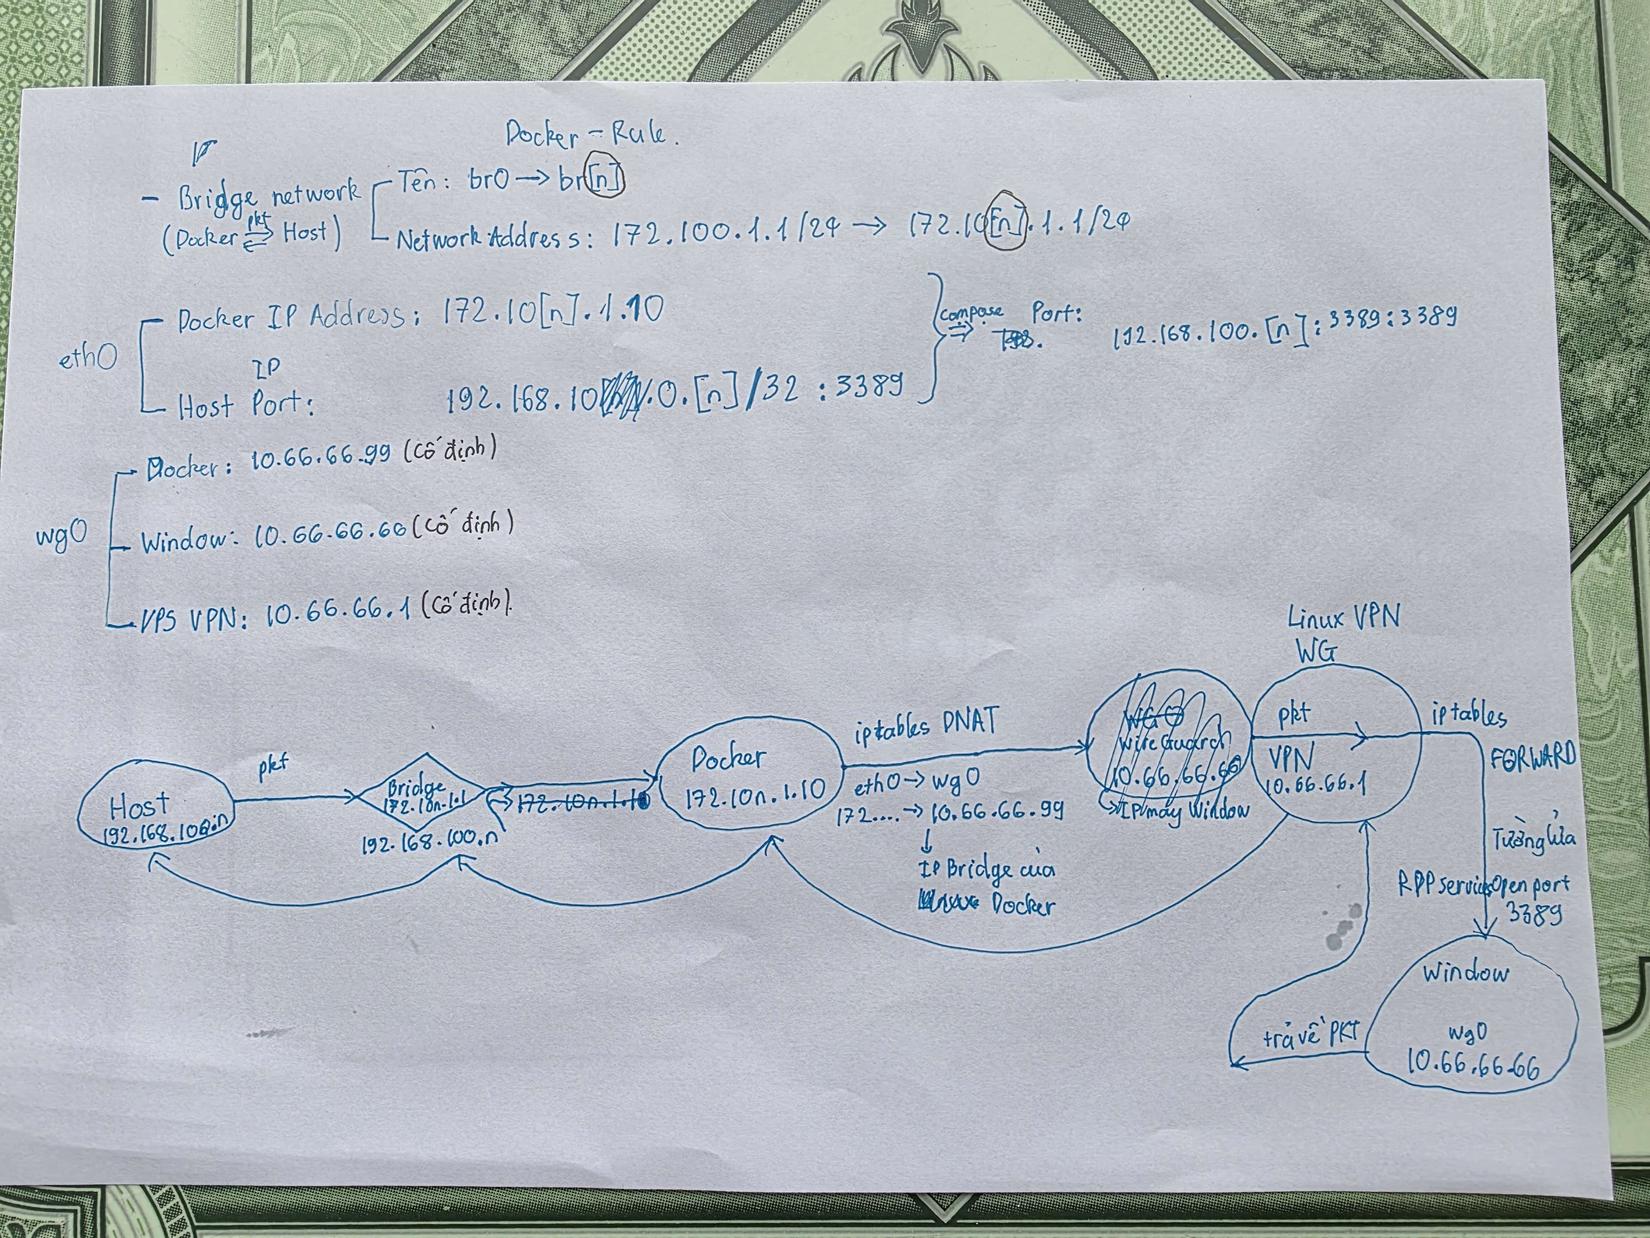 Docker - Rule.
- Bridge network
(Docker pkt ⇌ Host)
Tên: br0 → br[n]
Network Address: 172.100.1.1/24 → 172.10[n].1.1/24
eth0
Docker IP Address: 172.10[n].1.10
IP
Host Port: 192.168.10 .0.[n]/32 :3389
compose ⇒ Port: 192.168.100.[n]:3389:3389
wg0
Docker: 10.66.66.99 (Cố định)
Window: 10.66.66.66 (Cố định)
VPS VPN: 10.66.66.1 (Cố định).
Host
192.168.100.n
pkt
Bridge
172.10n.1.1
192.168.100.n
172.10n.1.10
Docker
172.10n.1.10
iptables DNAT
eth0 → wg0
172.... → 10.66.66.99
IP Bridge của
Docker
WG0
WireGuard
10.66.66.66
IP máy Window
Linux VPN
WG
pkt
VPN
10.66.66.1
iptables
FORWARD
Tường lửa
RDP service Open port
3389
Window
wg0
10.66.66.66
trả về PKT